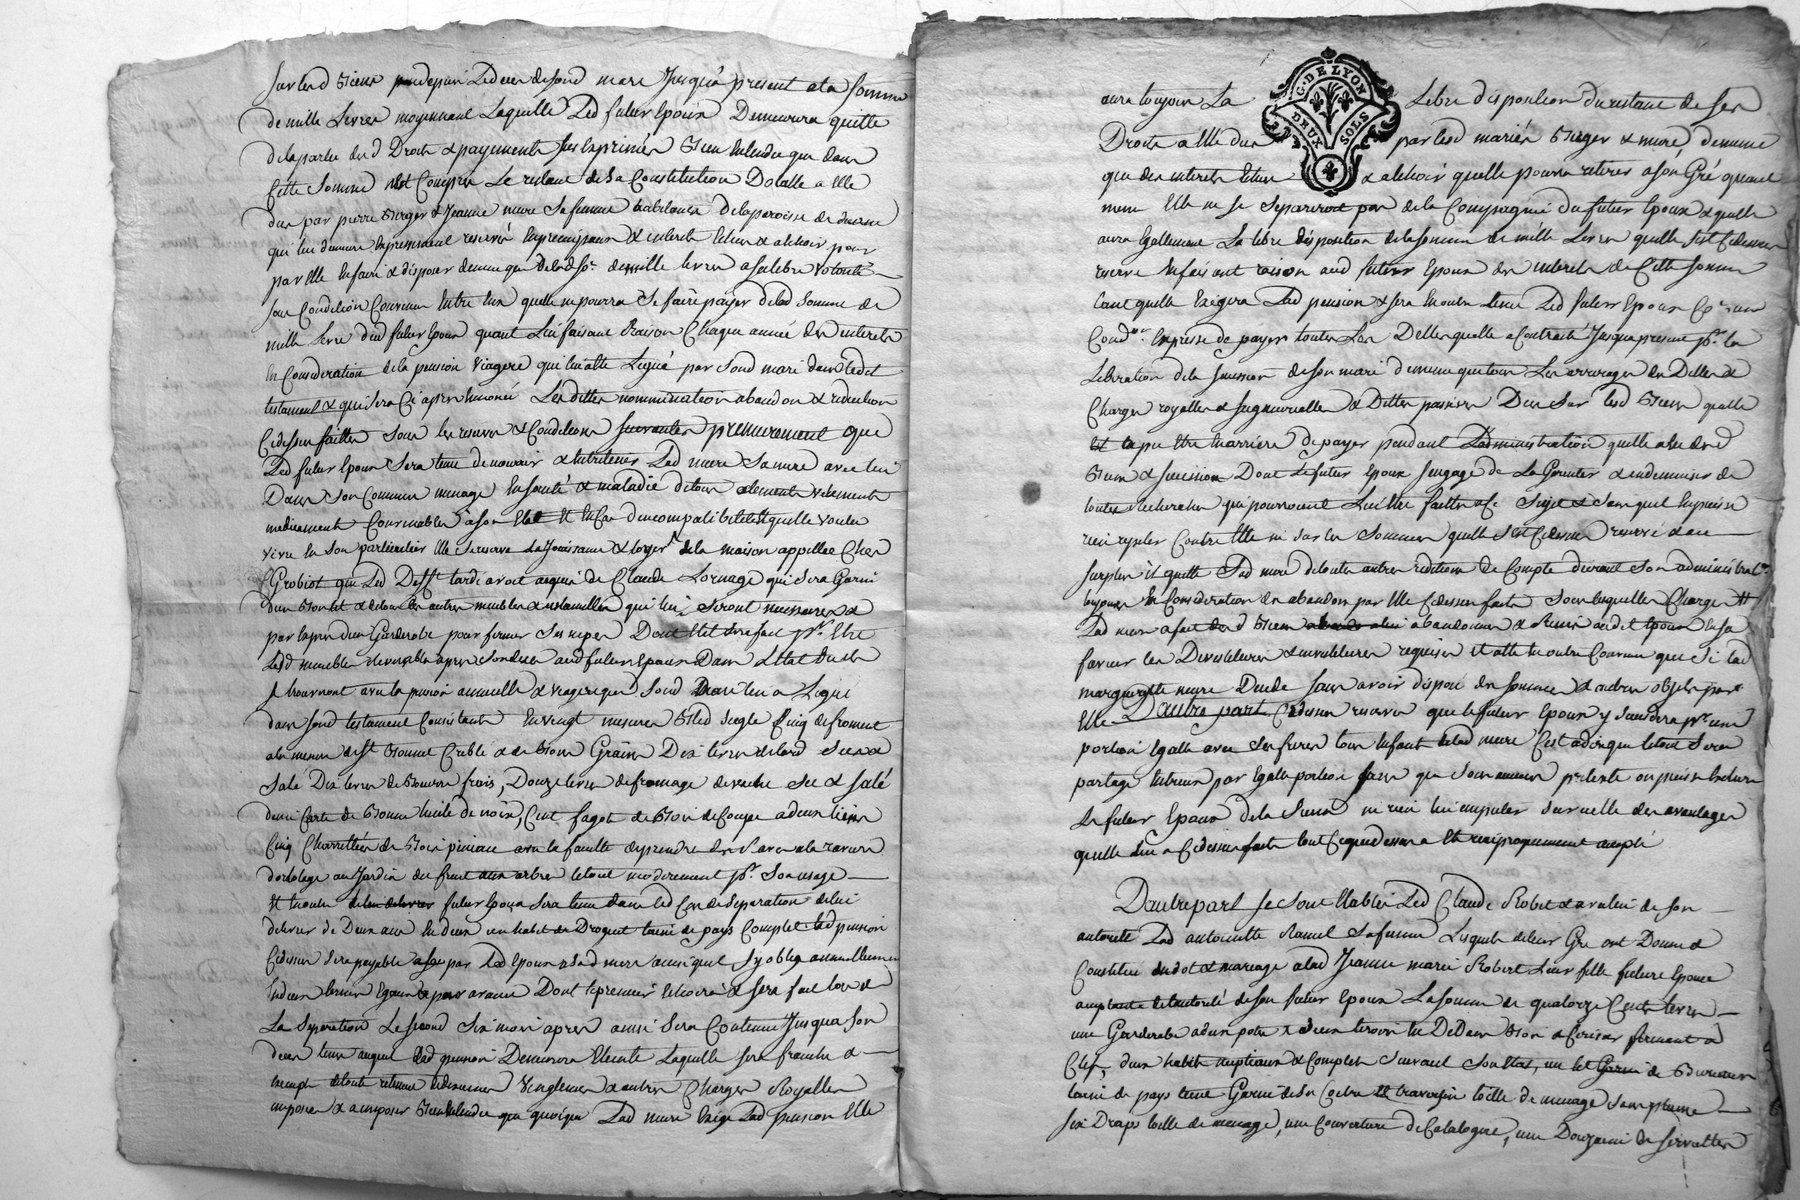 Surlesd Biens depuis Led deces desond mary Jusqu'à present a la somme
de mille Livres moyennant Laquelle Led futur Epoux Demeurera quitte
de la part des d Droits & payements sus exprimés Bien Entendu que dans
Cette Somme n'est Compris Le restant de sa Constitution Dotalle a Elle
due par pierre Berger & Jeanne mure sa femme habitants de la paroisse de
qui lui demeure Expressement reservé & interets Echus & a Echoir pour
par Elle En faire & disposer de meme que de lad So. de mille livres a sa libre volonté
sous Condition Convenue Entre Eux quelle ne pourra Se faire payer de lad Somme de
mille Livre dud futur Epoux quant Lui faisant Raison Chaque année des interets
En Consideration de la pension Viagere qui lui a été Leguée par Sond mari dans ledit
testament & qui Sera Ci apres Enoncée Les dittes nommination abandon & reduction
Cidessus faittes Sous les reserves & Conditions Suivantes premierement que
Led futur Epoux Sera tenu de nourrir & Entretenir Lad mure Sa mere avec lui
Dans Son Commun menage En Santé & maladie de tous aliments vetements
medicaments Convenables à son Etat Et En Cas d'incompatibilité & quelle voulu
vivre En Son particulier Elle Se reserve La Jouissance & Logemt de la maison appellée Chez
Grobiot que Led Deff. tardi avoit acquis de Claude Lornage qui Sera Garni
d'un Bon lit & de tous les autres meubles & ustancilles qui lui Seront necessaires &
par Exprès d'une Garderobe pour fermer Ses nipes Dont Etat Sera fait pr. Etre
Lesd meubles Reversibles apres Son deces aud futur Epoux Dans L'Etat ou ils
Se trouveront avec la pension annuelle & viagere que Sond mari lui a Legué
dans Sond testament Consistante En vingt mesures Bled Seigle Cinq de froment
a la mesure de St Bonnet Criblé & de Bons Grains Dix livres de lard Sec &
Salé Dix livres de Beurre frais, Douze livres de fromage de vache Sec & Salé
demi Carte de Bonne huile de noix, Cent fagots de Bois de Coupe a deux liens
Cinq Charrettées de Bois pineau avec la faculté de prendre des raves a la raviere
d'ortolage au Jardin du fruit aux arbres le tout moderement pr. Son usage
Et En outre futur Epoux Sera tenu dans led Cas de Separation de lui
delivrer de Deux ans En deux un habit de Droguet teint de pays Complet Lad pension
Cidessus Sera payable par Led Epoux a Sad mere ainsi quil S'y oblige annuellement
En deux termes Egaux & par avance Dont le premier Echoira & Sera fait lors de
La Separation Le Second Six mois apres ainsi Sera Continué Jusqua Son
deces tems auquel Lad pension Demeurera Eteinte Laquelle Sera franche &
Exempte de toute retenue de dixiemes Vingtiemes & autres Charges Royalles
imposées & a imposer Bien Entendu que quoique Lad mure Exige Lad pension Elle
G. DE LYON
DEUX SOLS
aura toujours La Libre disposition du restant de Ses
Droits a Elle dus par lesd mariés Berger & mure, de meme
que des interets Echus & a Echoir quelle pourra retirer a Son Gré quand
meme Elle ne Se Separeroit pas de la Compagnie du futur Epoux & quelle
aura Egallement La libre disposition de la Somme de mille Livres quelle S'est Cidessus
reservé En faisant raison aud futur Epoux des interets de Cette Somme
tant quelle Exigera Lad pension & Sera En outre tenu Led futur Epoux
Condon Expresse de payer toutes Les Dettes quelle a Contracté Jusqua present pr. la
Liberation de la Succession de Son mari de meme que tous Les arrerages des Dettes &
Charges royalles & Seigneurialles & Dettes passives Dues Sur lesd Biens quelle
a pu Etre En arriere de payer pendant L'administration quelle a Eue des d
Biens & Succession Dont Le futur Epoux S'engage de La Garantir & indemniser de
toutes Recherches qui pourroient Lui Etre faittes a Ce Sujet & Sans quil En puisse
rien repeter Contre Elle ni Sur les Sommes quelle S'est Cidessus reservé & au
Surplus il quitte Sad mere de toutes autres redditions de Compte d'icelle Son administraton
toujours En Consideration des abandons par Elle Cidessus faits Sous lesquelles Charges
Lad mere a fait des d Biens abandonnés & Remis audit Epoux En Sa
faveur Les Devestitures & investitures requises Et a Eté En outre Convenu que Si lad
margueritte mure Decede Sans avoir disposé des Sommes & autres objets part
Elle D'autre part Cidessus reservés que le futur Epoux y Succedera pr. une
portion Egalle avec Ses freres tous Enfants de lad mure C'est a dire que le tout Sera
partagé Entreux par Egalle portion Sans que Sous aucun pretexte on puisse Exclure
Le futur Epoux de la Sienne ni rien lui imputer Sur icelle des avantages
quelle Lui a Cidessus faits tout Ce que dessus a Eté reciproquement accepté
D'autre part Se Sont Etablis Led Claude Robert & avalui de Son
autorité Lad antoinette Ramel Sa femme Lesquels de leur Gré ont Donné &
Constitué En dot & mariage a lad Jeanne marie Robert Leur fille future Epouse
acceptante de l'autorité de Son futur Epoux La Somme de quatorze Cents livres
une Garderobe a deux portes & deux tiroirs Dedans Bois de Cerisier fermant a
Clef, d'un habit nuptiaux & Complet Suivant Son Etat, un lit Garni de
teint de pays Garni de Sa Coetre & traversin toille de menage Sans plume
Six Draps toille de menage, une Couverture de Catalogne, une Douzaine de Serviettes